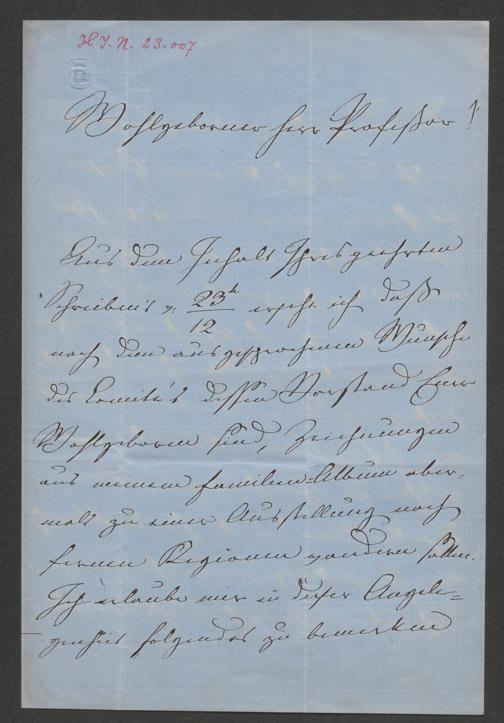 H.I.N. 23.007
Wohlgeborner Herr Profeßor!
Aus dem Inhalt Ihres geehrten
Schreibens v. 23t/12 ersehe ich daß
nach dem ausgesprochenen Wunsche
des Comité's dessen Vorstand Euer
Wohlgeboren sind, Zeichnungen
aus meinem Familien-Album aber=
mals zu einer Ausstellung nach
fernen Regionen wandern sollen.
Ich erlaube mir in dieser Angele=
genheit folgendes zu bemerken